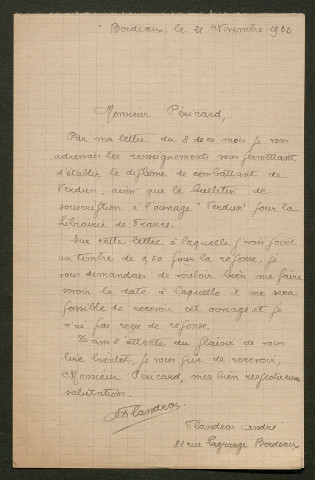 Bordeaux, le 21 Novembre 1932
Monsieur Péricard,
Par ma lettre du 8 de ce mois je vous
adressais les renseignements vous permettant
d'établir le diplôme de combattant de
Verdun, ainsi que le bulletin de
souscription à l'ouvrage "Verdun" pour la
Librairie de France.
Sur cette lettre à laquelle j'avais joint
un timbre de 0,50 pour la réponse, je
vous demandais de vouloir bien me faire
savoir la date à laquelle il me sera
possible de recevoir cet ouvrage, et je
n'ai pas reçu de réponse.
Dans l'attente du plaisir de vous
lire bientôt, je vous prie de recevoir,
Monsieur Péricard, mes bien respectueuses
salutations.
Flandrai André
rue Lagrange Bordeaux